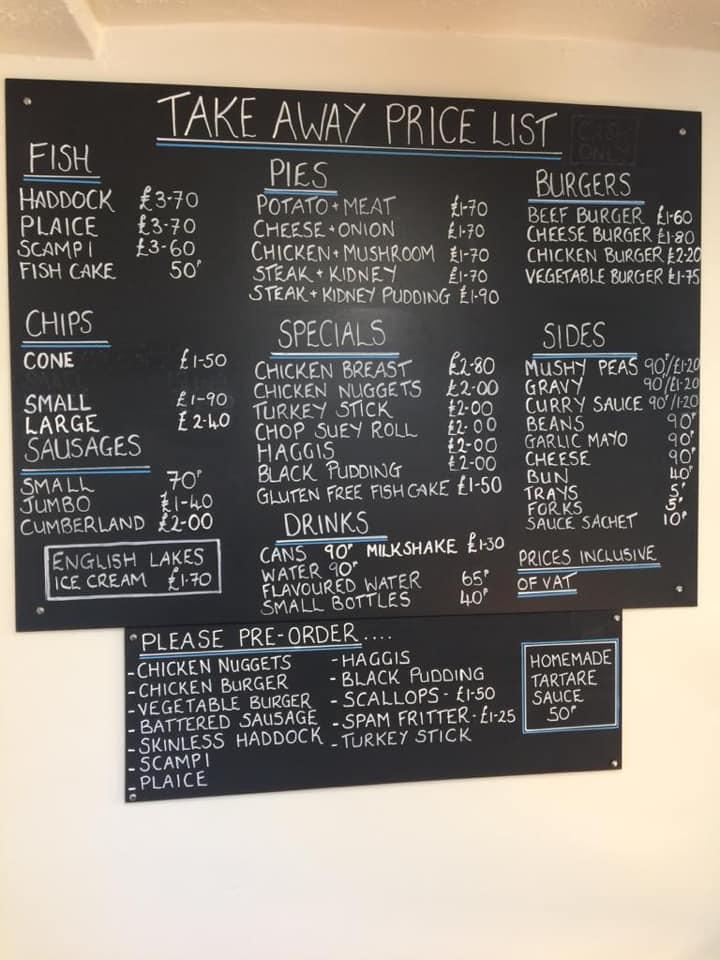 TAKE AWAY PRICE LIST
CASH
ONLY
FISH
HADDOCK £3-70
PLAICE £3-70
SCAMPI £3-60
FISH CAKE 50P
CHIPS
CONE £1-50
SMALL £1-90
LARGE £2-40
SAUSAGES
SMALL 70P
JUMBO £1-40
CUMBERLAND £2-00
ENGLISH LAKES
ICE CREAM £1-70
PIES
POTATO + MEAT £1-70
CHEESE + ONION £1-70
CHICKEN + MUSHROOM £1-70
STEAK + KIDNEY £1-70
STEAK + KIDNEY PUDDING £1-90
SPECIALS
CHICKEN BREAST £2-80
CHICKEN NUGGETS £2-00
TURKEY STICK £2-00
CHOP SUEY ROLL £2-00
HAGGIS £2-00
BLACK PUDDING £2-00
GLUTEN FREE FISHCAKE £1-50
DRINKS
CANS 90P MILKSHAKE £1-30
WATER 90P
FLAVOURED WATER 65P
SMALL BOTTLES 40P
BURGERS
BEEF BURGER £1-60
CHEESE BURGER £1-80
CHICKEN BURGER £2-20
VEGETABLE BURGER £1-75
SIDES
MUSHY PEAS 90P/£1-20
GRAVY 90P/£1-20
CURRY SAUCE 90P/1-20
BEANS 90P
GARLIC MAYO 90P
CHEESE 90P
BUN 40P
TRAYS 5P
FORKS 5P
SAUCE SACHET 10P
PRICES INCLUSIVE
OF VAT
PLEASE PRE-ORDER....
- CHICKEN NUGGETS
- CHICKEN BURGER
- VEGETABLE BURGER
- BATTERED SAUSAGE
- SKINLESS HADDOCK
- SCAMPI
- PLAICE
- HAGGIS
- BLACK PUDDING
- SCALLOPS - £1-50
- SPAM FRITTER - £1-25
- TURKEY STICK
HOMEMADE
TARTARE
SAUCE
50P